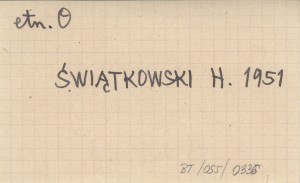 etn. O
ŚWIĄTKOWSKI H. 1951
87/055/0335